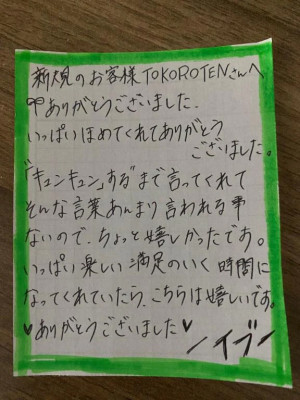 新規のお客様TOKOROTENさんへ
ありがとうございました.
いっぱいほめてくれてありがとう
ございました。
"キュンキュン"する"まで言ってくれて
そんな言葉あんまり言われる事
ないので、ちょっと嬉しかったです。
いっぱい楽しい満足のいく時間に
なってくれていたら、こちらは嬉しいです。
♥ありがとうございました♥
ノイブー